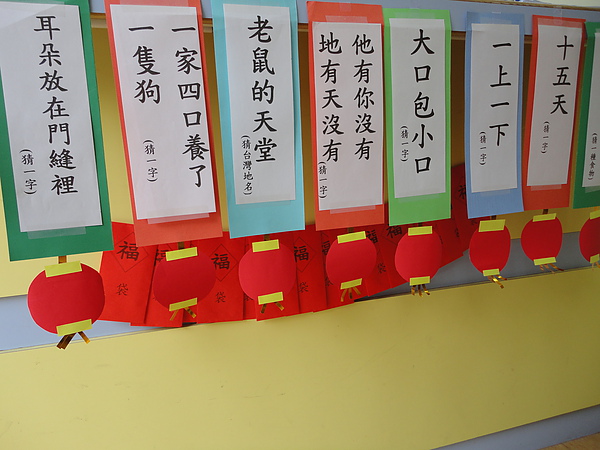 耳朵放在門縫裡
(猜一字)
一家四口養了
一隻狗
(猜一字)
老鼠的天堂
(猜台灣地名)
他有你沒有
地有天沒有
(猜一字)
大口包小口
(猜一字)
一上一下
(猜一字)
十五天
(猜一字)
(猜一種食物)
福
袋
福
袋
福
袋